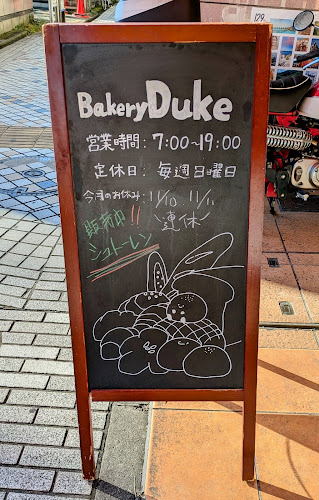 Bakery Duke
営業時間：7:00～19:00
定休日：毎週日曜日
今月のお休み：11/10 11/11
連休
販売中!!
シュトーレン